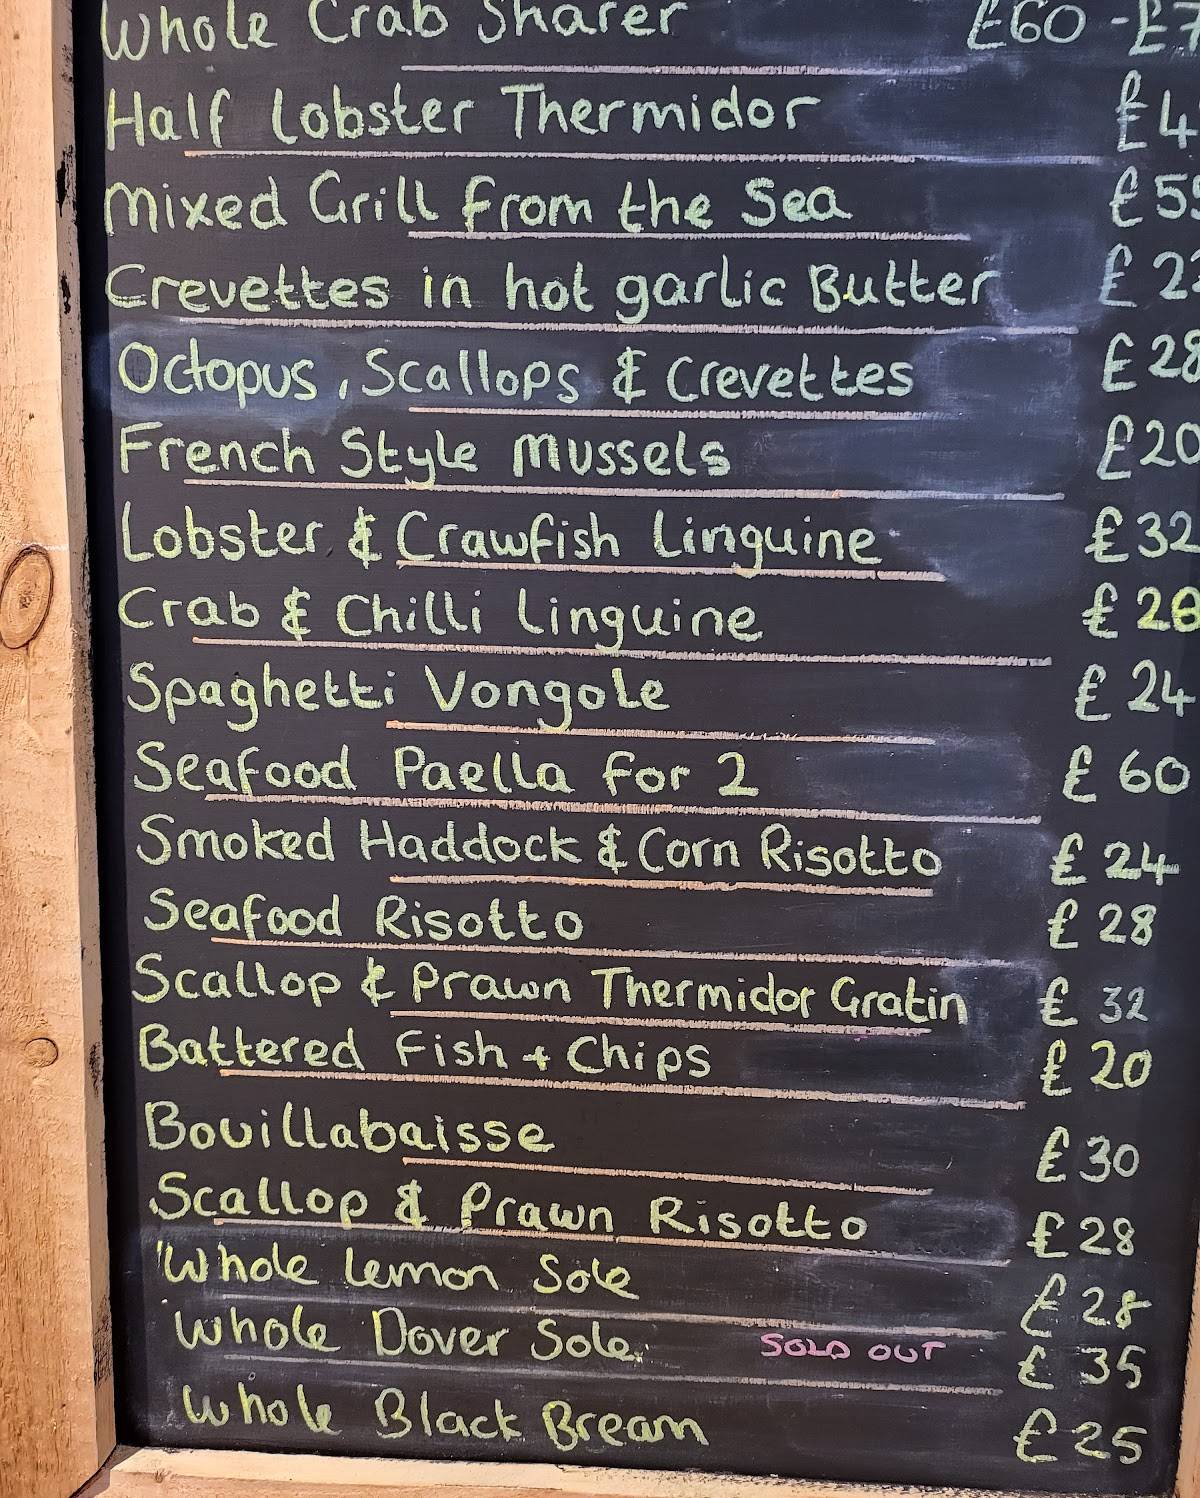 Whole Crab Sharer £60 - £7
Half Lobster Thermidor £4
Mixed Grill from the Sea £5
Crevettes in hot garlic Butter £2
Octopus, Scallops & Crevettes £28
French Style Mussels £20
Lobster & Crawfish Linguine £32
Crab & Chilli Linguine £26
Spaghetti Vongole £24
Seafood Paella for 2 £60
Smoked Haddock & Corn Risotto £24
Seafood Risotto £28
Scallop & Prawn Thermidor Gratin £32
Battered Fish + Chips £20
Bouillabaisse £30
Scallop & Prawn Risotto £28
Whole Lemon Sole £28
Whole Dover Sole SOLD OUT £35
Whole Black Bream £25